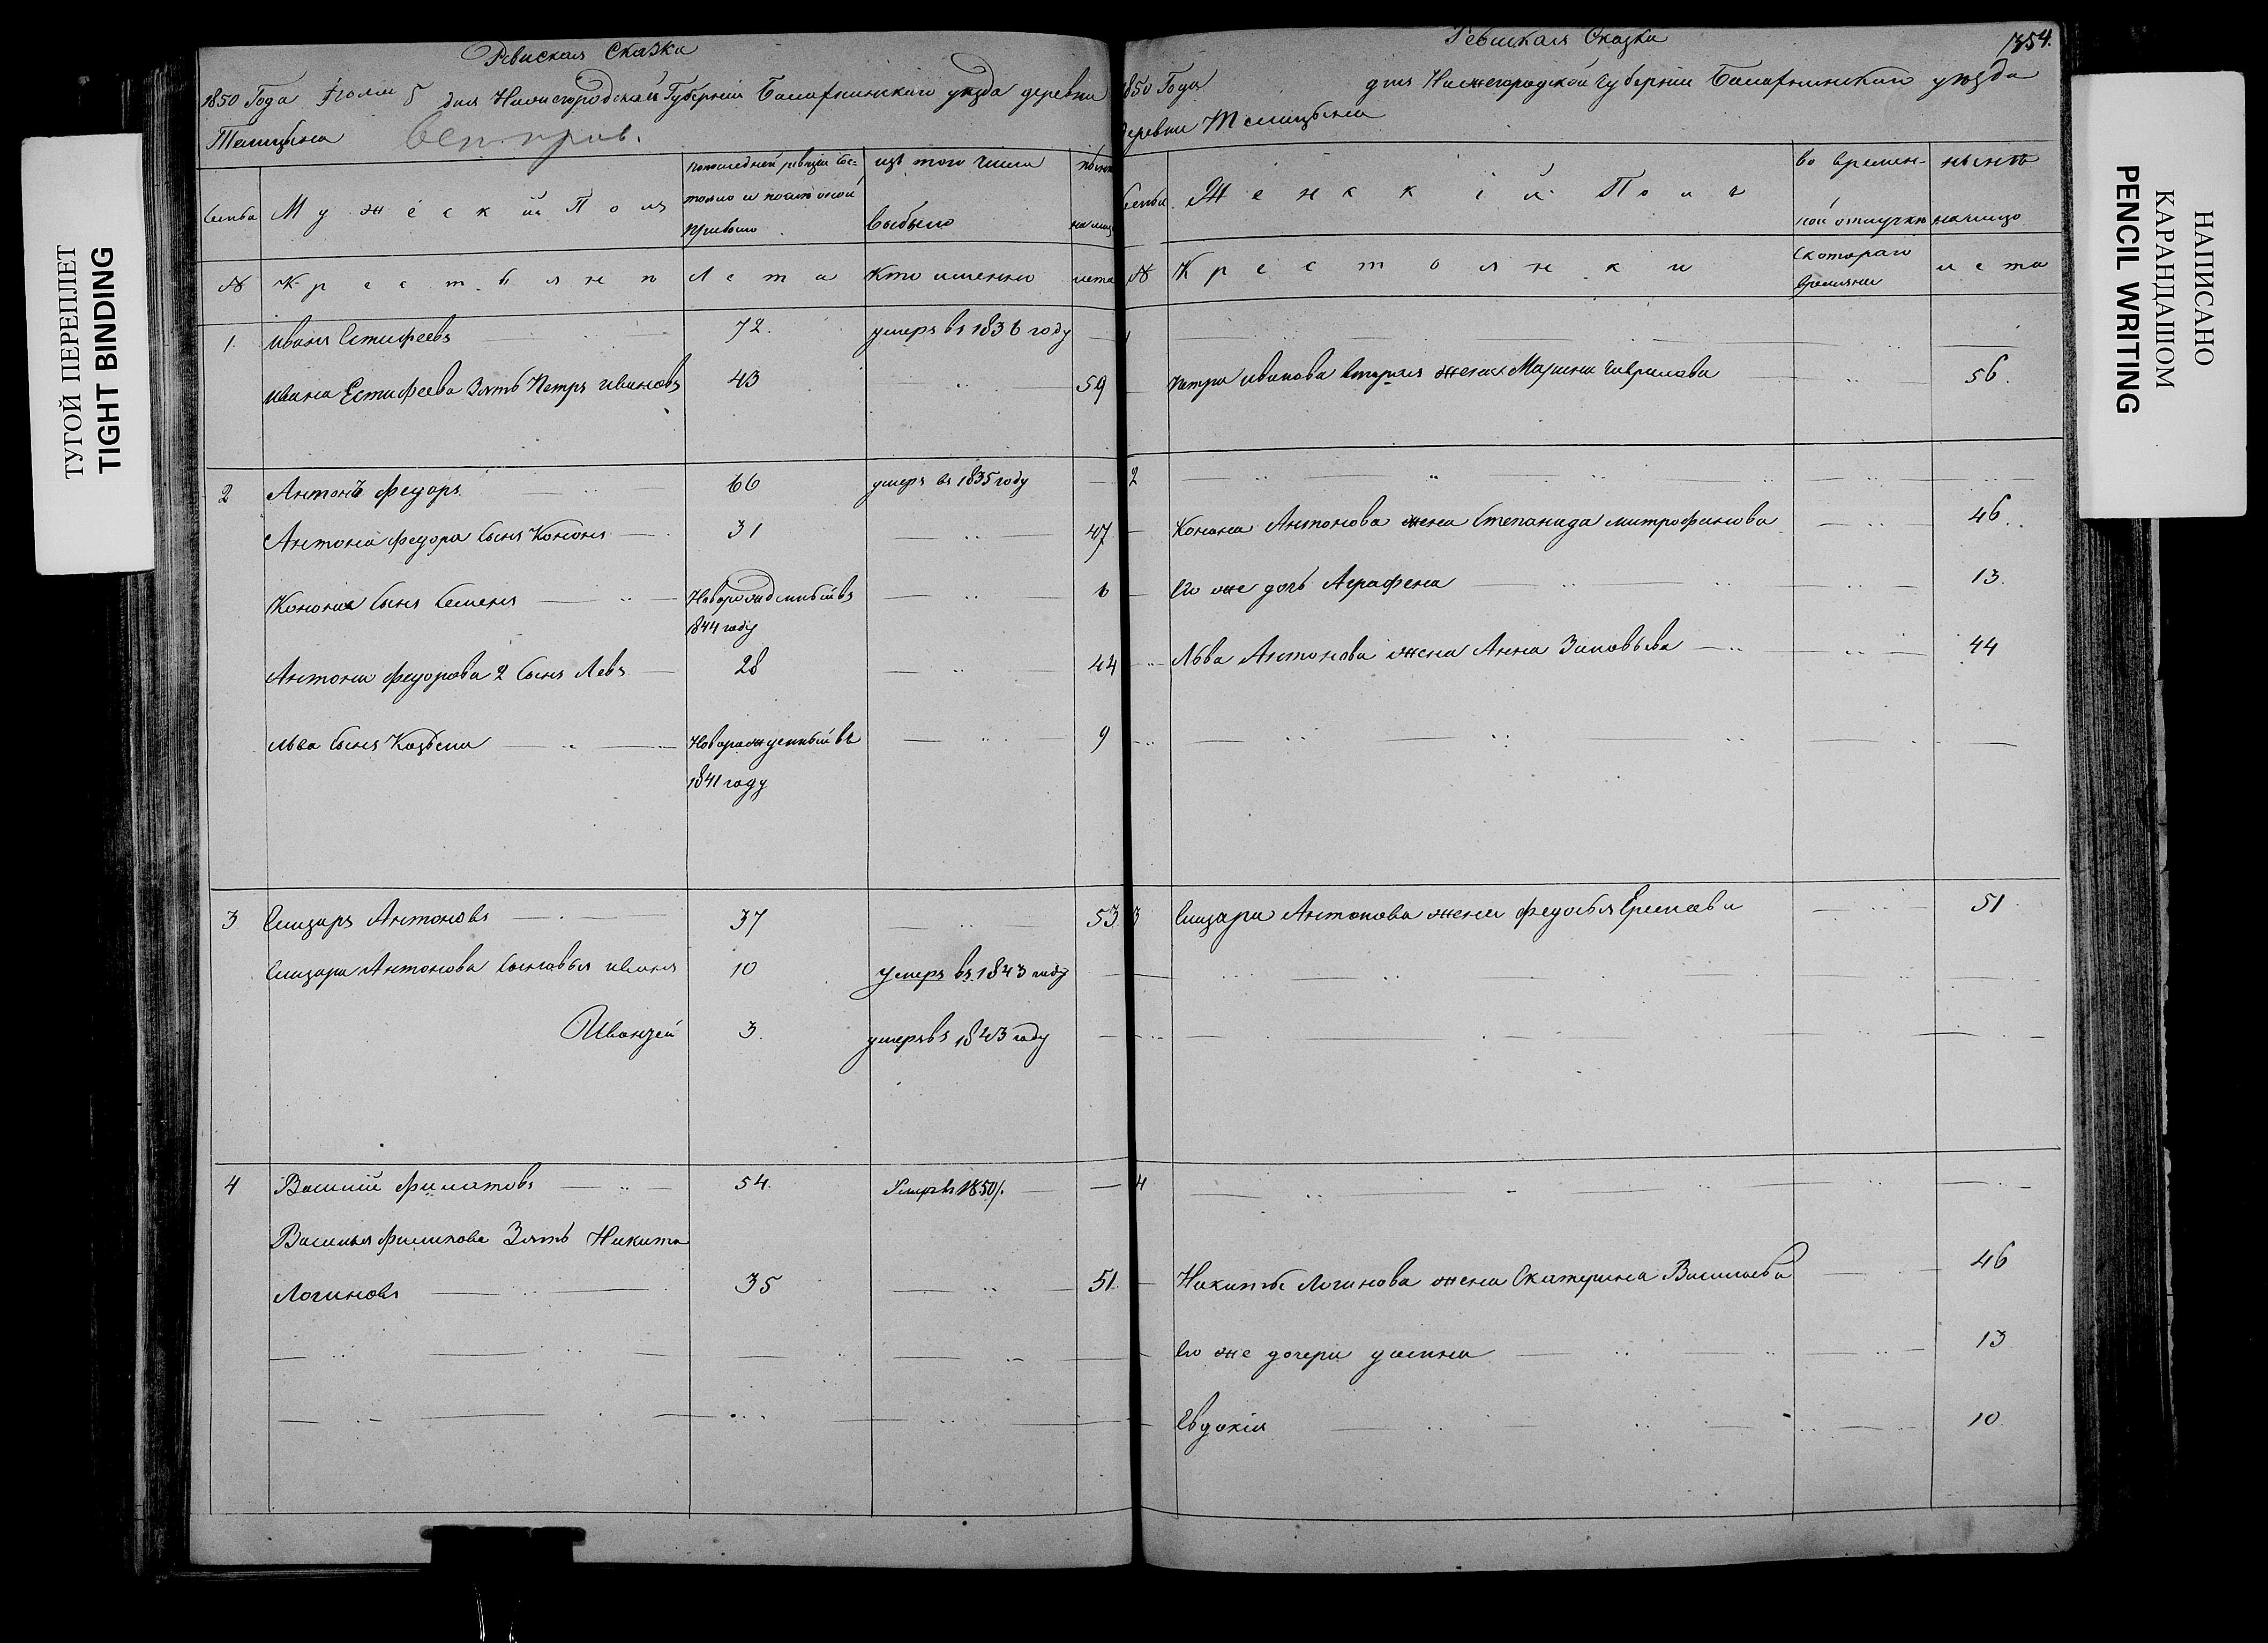 ТУГОЙ ПЕРЕПЛЕТ
TIGHT BINDING
Ревиская Сказка
1850 Года Июля 5 дня Нижегородской Губернии Балахнинского уезда деревни
Телицына
Семьи
Мужеской Полъ
по последней ревизии сос-
тояло и после оной
прибыло
изъ того числа
выбыло
ныне
на лицо
№ Крестьяне Лета кто именно лета
1 Иванъ Естифеевъ 72 умеръ въ 1836 году
Ивана Естифеева Зять Петръ Ивановъ 43 59
2 Антонъ Федоръ 66 умеръ въ 1835 году
Антона Федора сынъ Кононъ 31 47
Конона сынъ Семенъ Новорожденный въ 6
1844 году
Антона Федорова 2 сынъ Левъ 28 44
Льва сынъ Козьма Новорожденный въ 9
1841 году
3 Елизаръ Антоновъ 37 53
Елизара Антонова сыновья Иванъ 10 умеръ въ 1843 году
3 умеръ въ 1843 году
4 Василий Филатовъ 54 Умеръ въ 1850
Василья Филипова Зять Никита
Логиновъ 35 51
Ревиская Сказка
1354.
1850 Года дня Нижегородской Губернии Балахнинского уезда
деревни Телицына
Семьи
Женский Полъ
во времен-
ной отлучке
ныне
на лицо
№ Крестьянки
с котораго
времяни
лета
1
Петра Иванова вторая жена Марина Гаврилова 56
2
Конона Антонова жена Степанида Митрофанова 46
Его же дочь Аграфена 13
Льва Антонова жена Анна Зиновьева 44
3 Елизара Антонова жена Федосья Еремеева 51
4
Никиты Логинова жена Екатерина Васильева 46
Его же дочери Устинья 13
Евдокия 10
НАПИСАНО
КАРАНДАШОМ
PENCIL WRITING